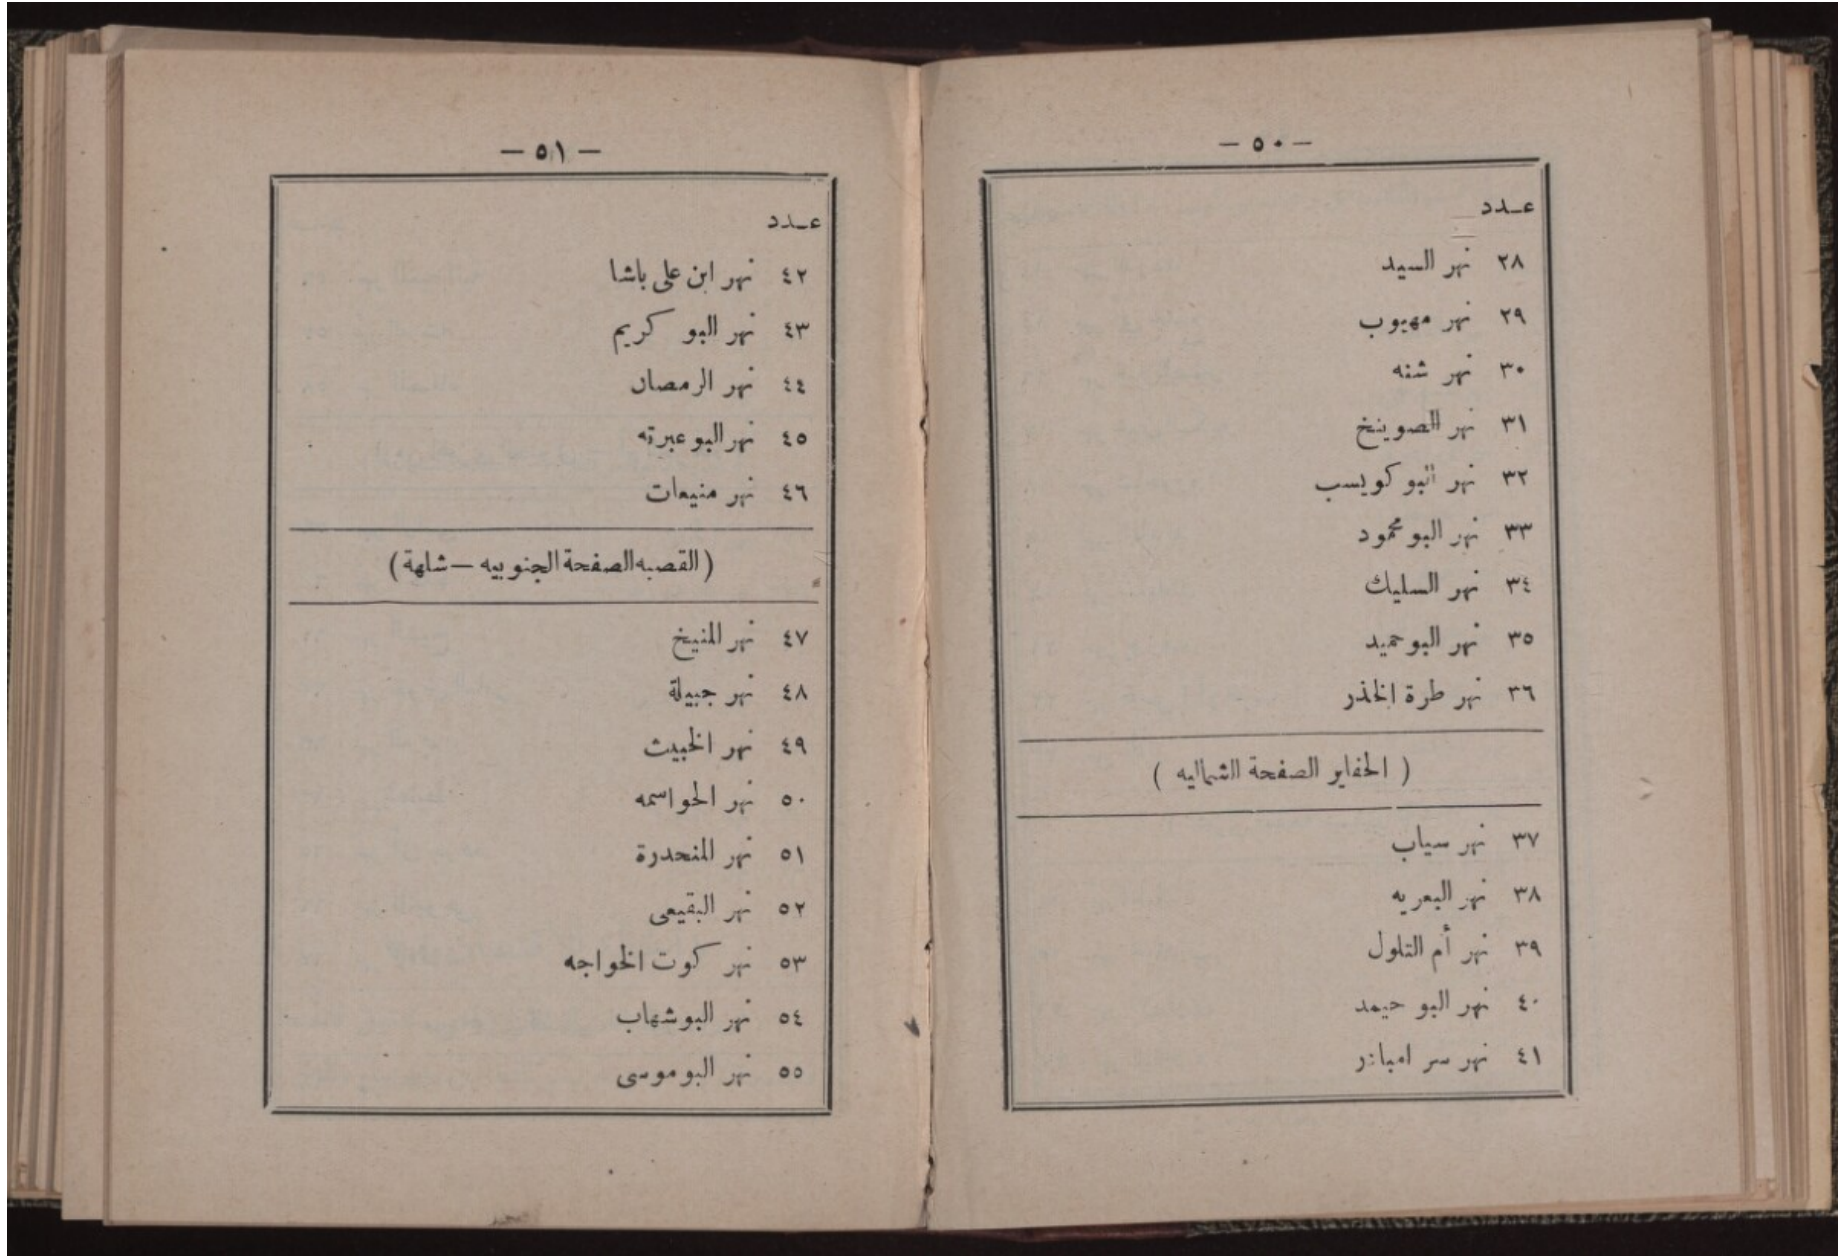 — ٥٠ —
عـدد
٢٨ نهر السيد
٢٩ نهر مهبوب
٣٠ نهر شنه
٣١ نهر الصوينخ
٣٢ نهر البو كويسب
٣٣ نهر البو محمود
٣٤ نهر السليك
٣٥ نهر البو حميد
٣٦ نهر طرة الخذر
( الحفاير الصفحة الشماليه )
٣٧ نهر سياب
٣٨ نهر البعريه
٣٩ نهر أم التلول
٤٠ نهر البو حيمد
٤١ نهر سر امبادر
— ٥١ —
عـدد
٤٢ نهر ابن على باشا
٤٣ نهر البو كريم
٤٤ نهر الرمصان
٤٥ نهر البو عبرته
٤٦ نهر منيعات
( القصبه الصفحة الجنوبيه — شاهة )
٤٧ نهر المنيخ
٤٨ نهر جبيلة
٤٩ نهر الخبيث
٥٠ نهر الحواسمه
٥١ نهر المنحدرة
٥٢ نهر البقيعى
٥٣ نهر كوت الخواجه
٥٤ نهر البو شهاب
٥٥ نهر البو موسى